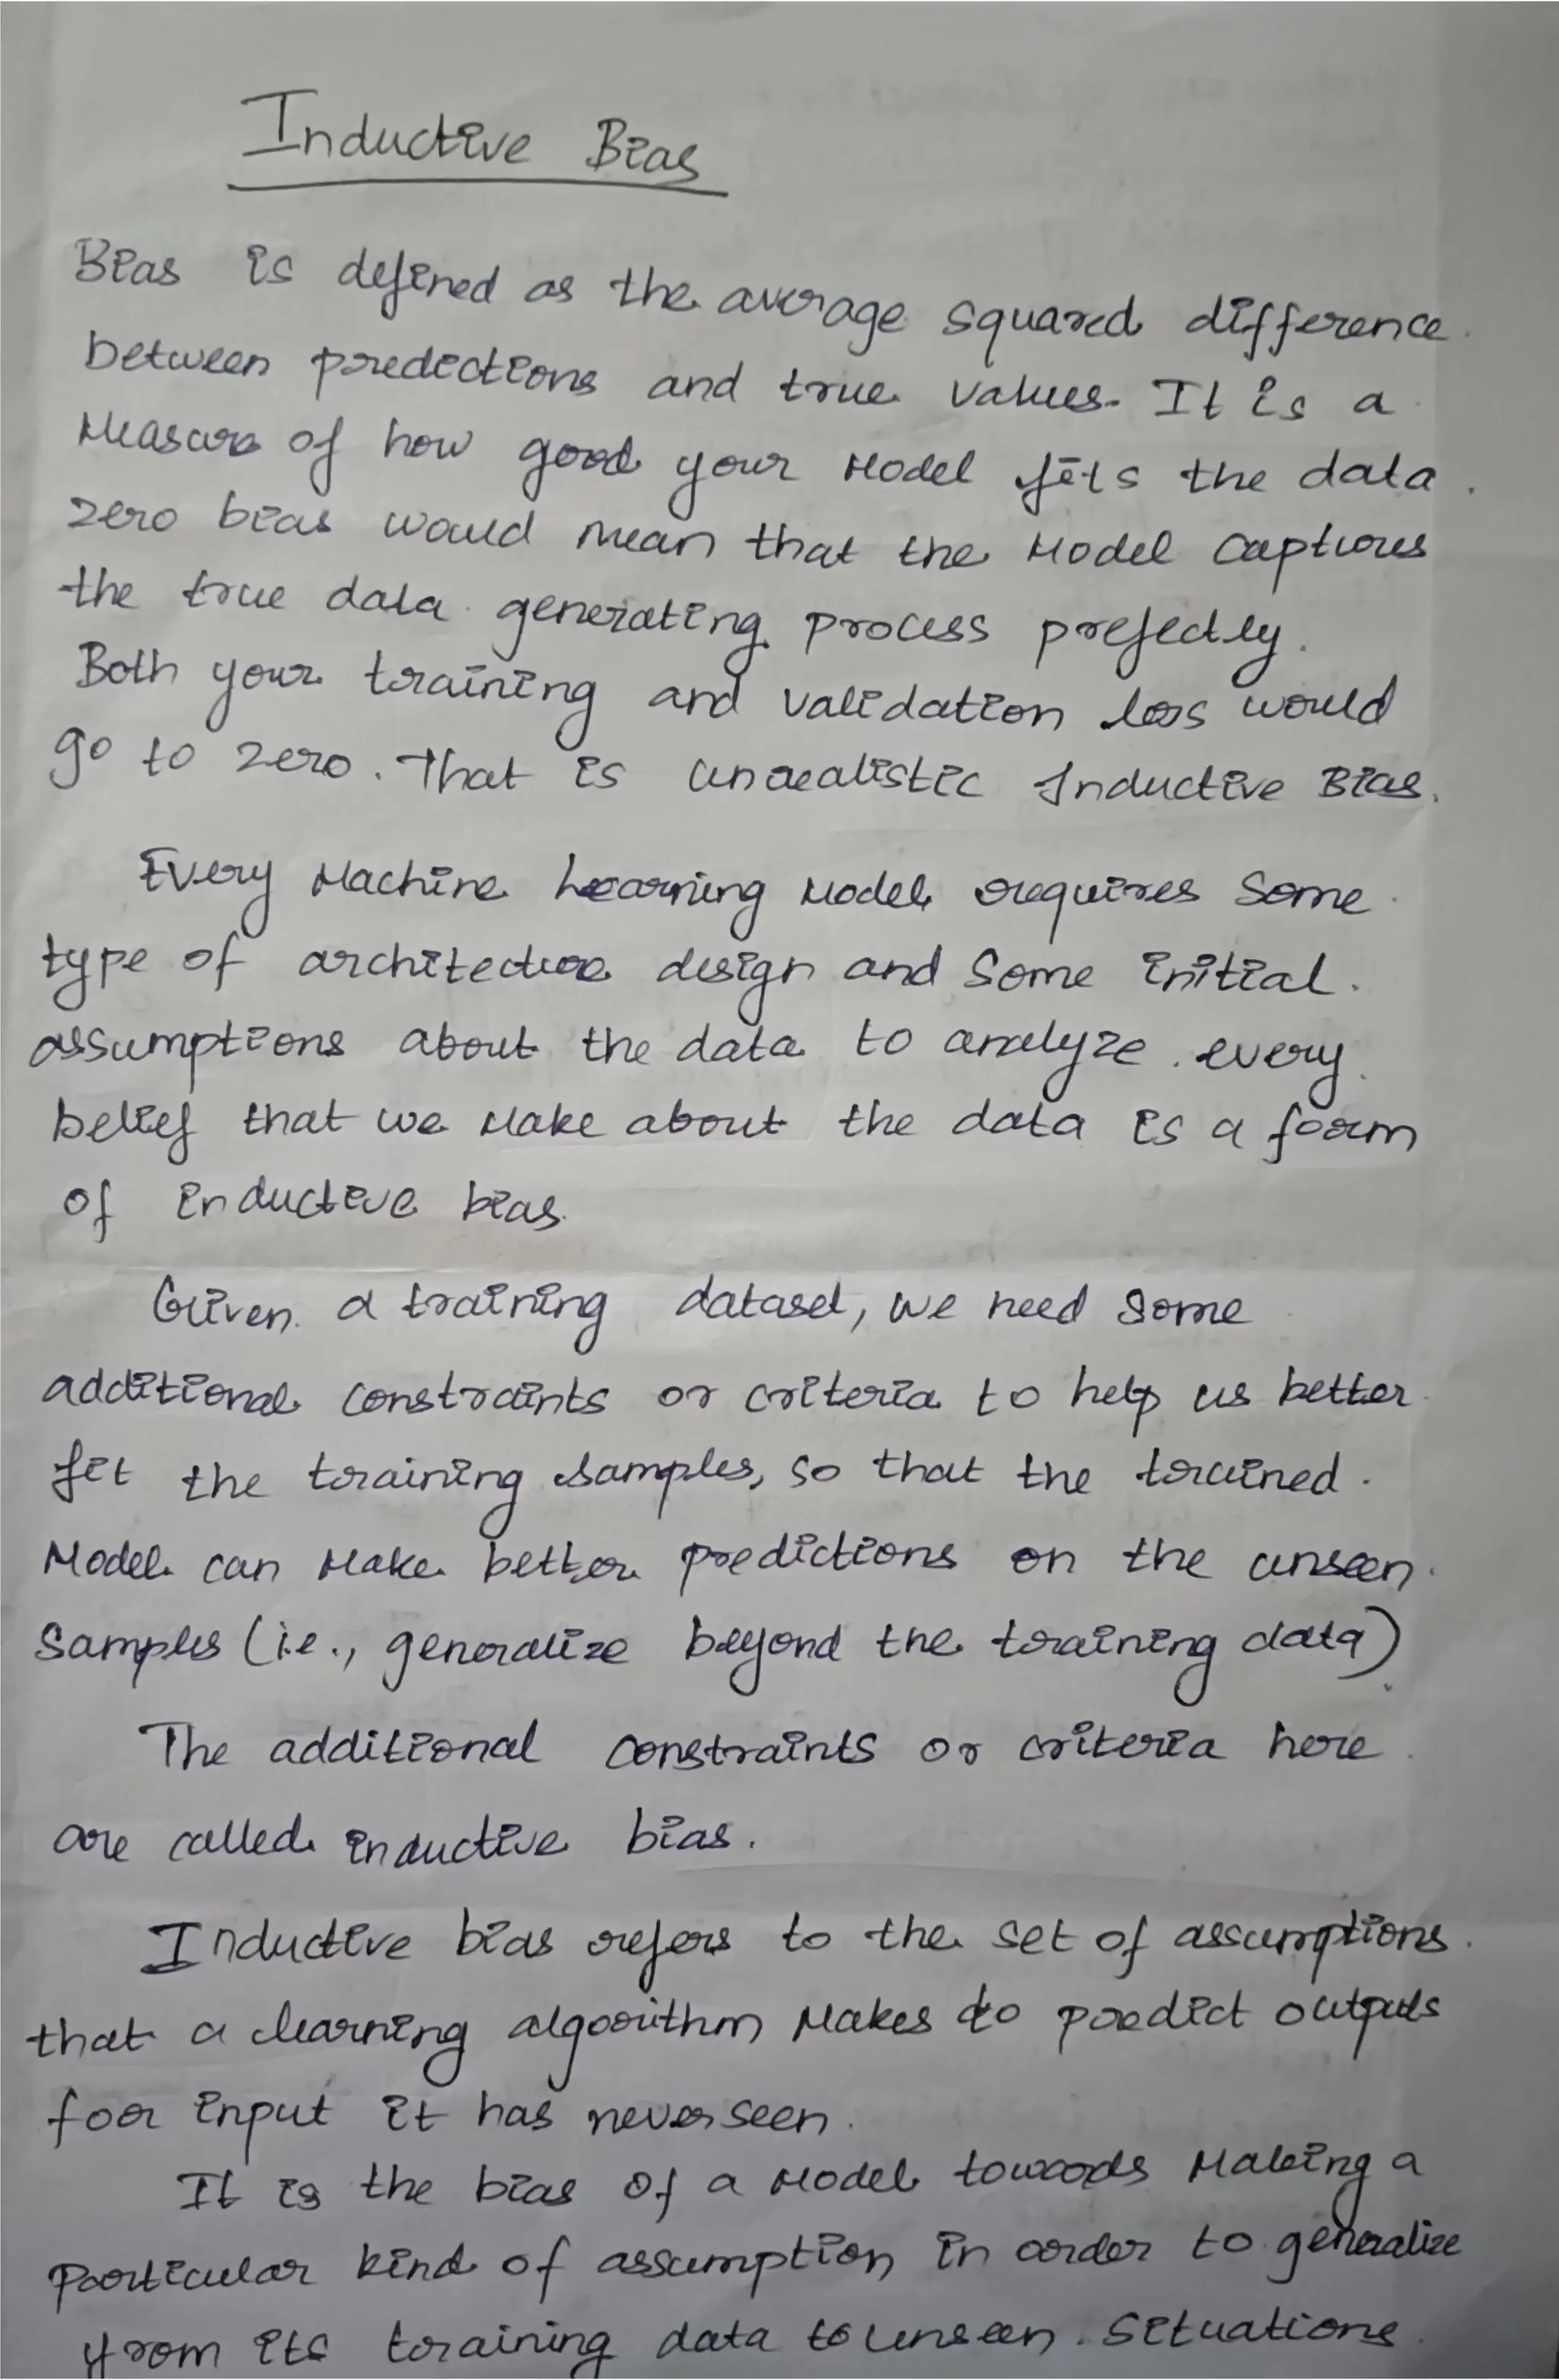 Inductive Bias
Bias is defined as the average squared difference
between predictions and true values. It is a
Measure of how good your Model fits the data.
zero bias would mean that the Model captures
the true data generating process prefectly.
Both your training and validation loss would
go to zero. That is unrealistic Inductive Bias.
Every Machine Learning Model requires Some
type of architecture design and Some initial
assumptions about the data to analyze. every
belief that we Make about the data is a form
of inductive bias.
Given a training dataset, we need Some
additional constraints or criteria to help us better
fit the training samples, so that the trained
Model can Make better predictions on the unseen
Samples (i.e., generalize beyond the training data).
The additional constraints or criteria here
are called inductive bias.
Inductive bias refers to the set of assumptions
that a learning algorithm Makes to predict outputs
for input it has never seen.
It is the bias of a Model towards Making a
particular kind of assumption in order to generalize
from its training data to unseen situations